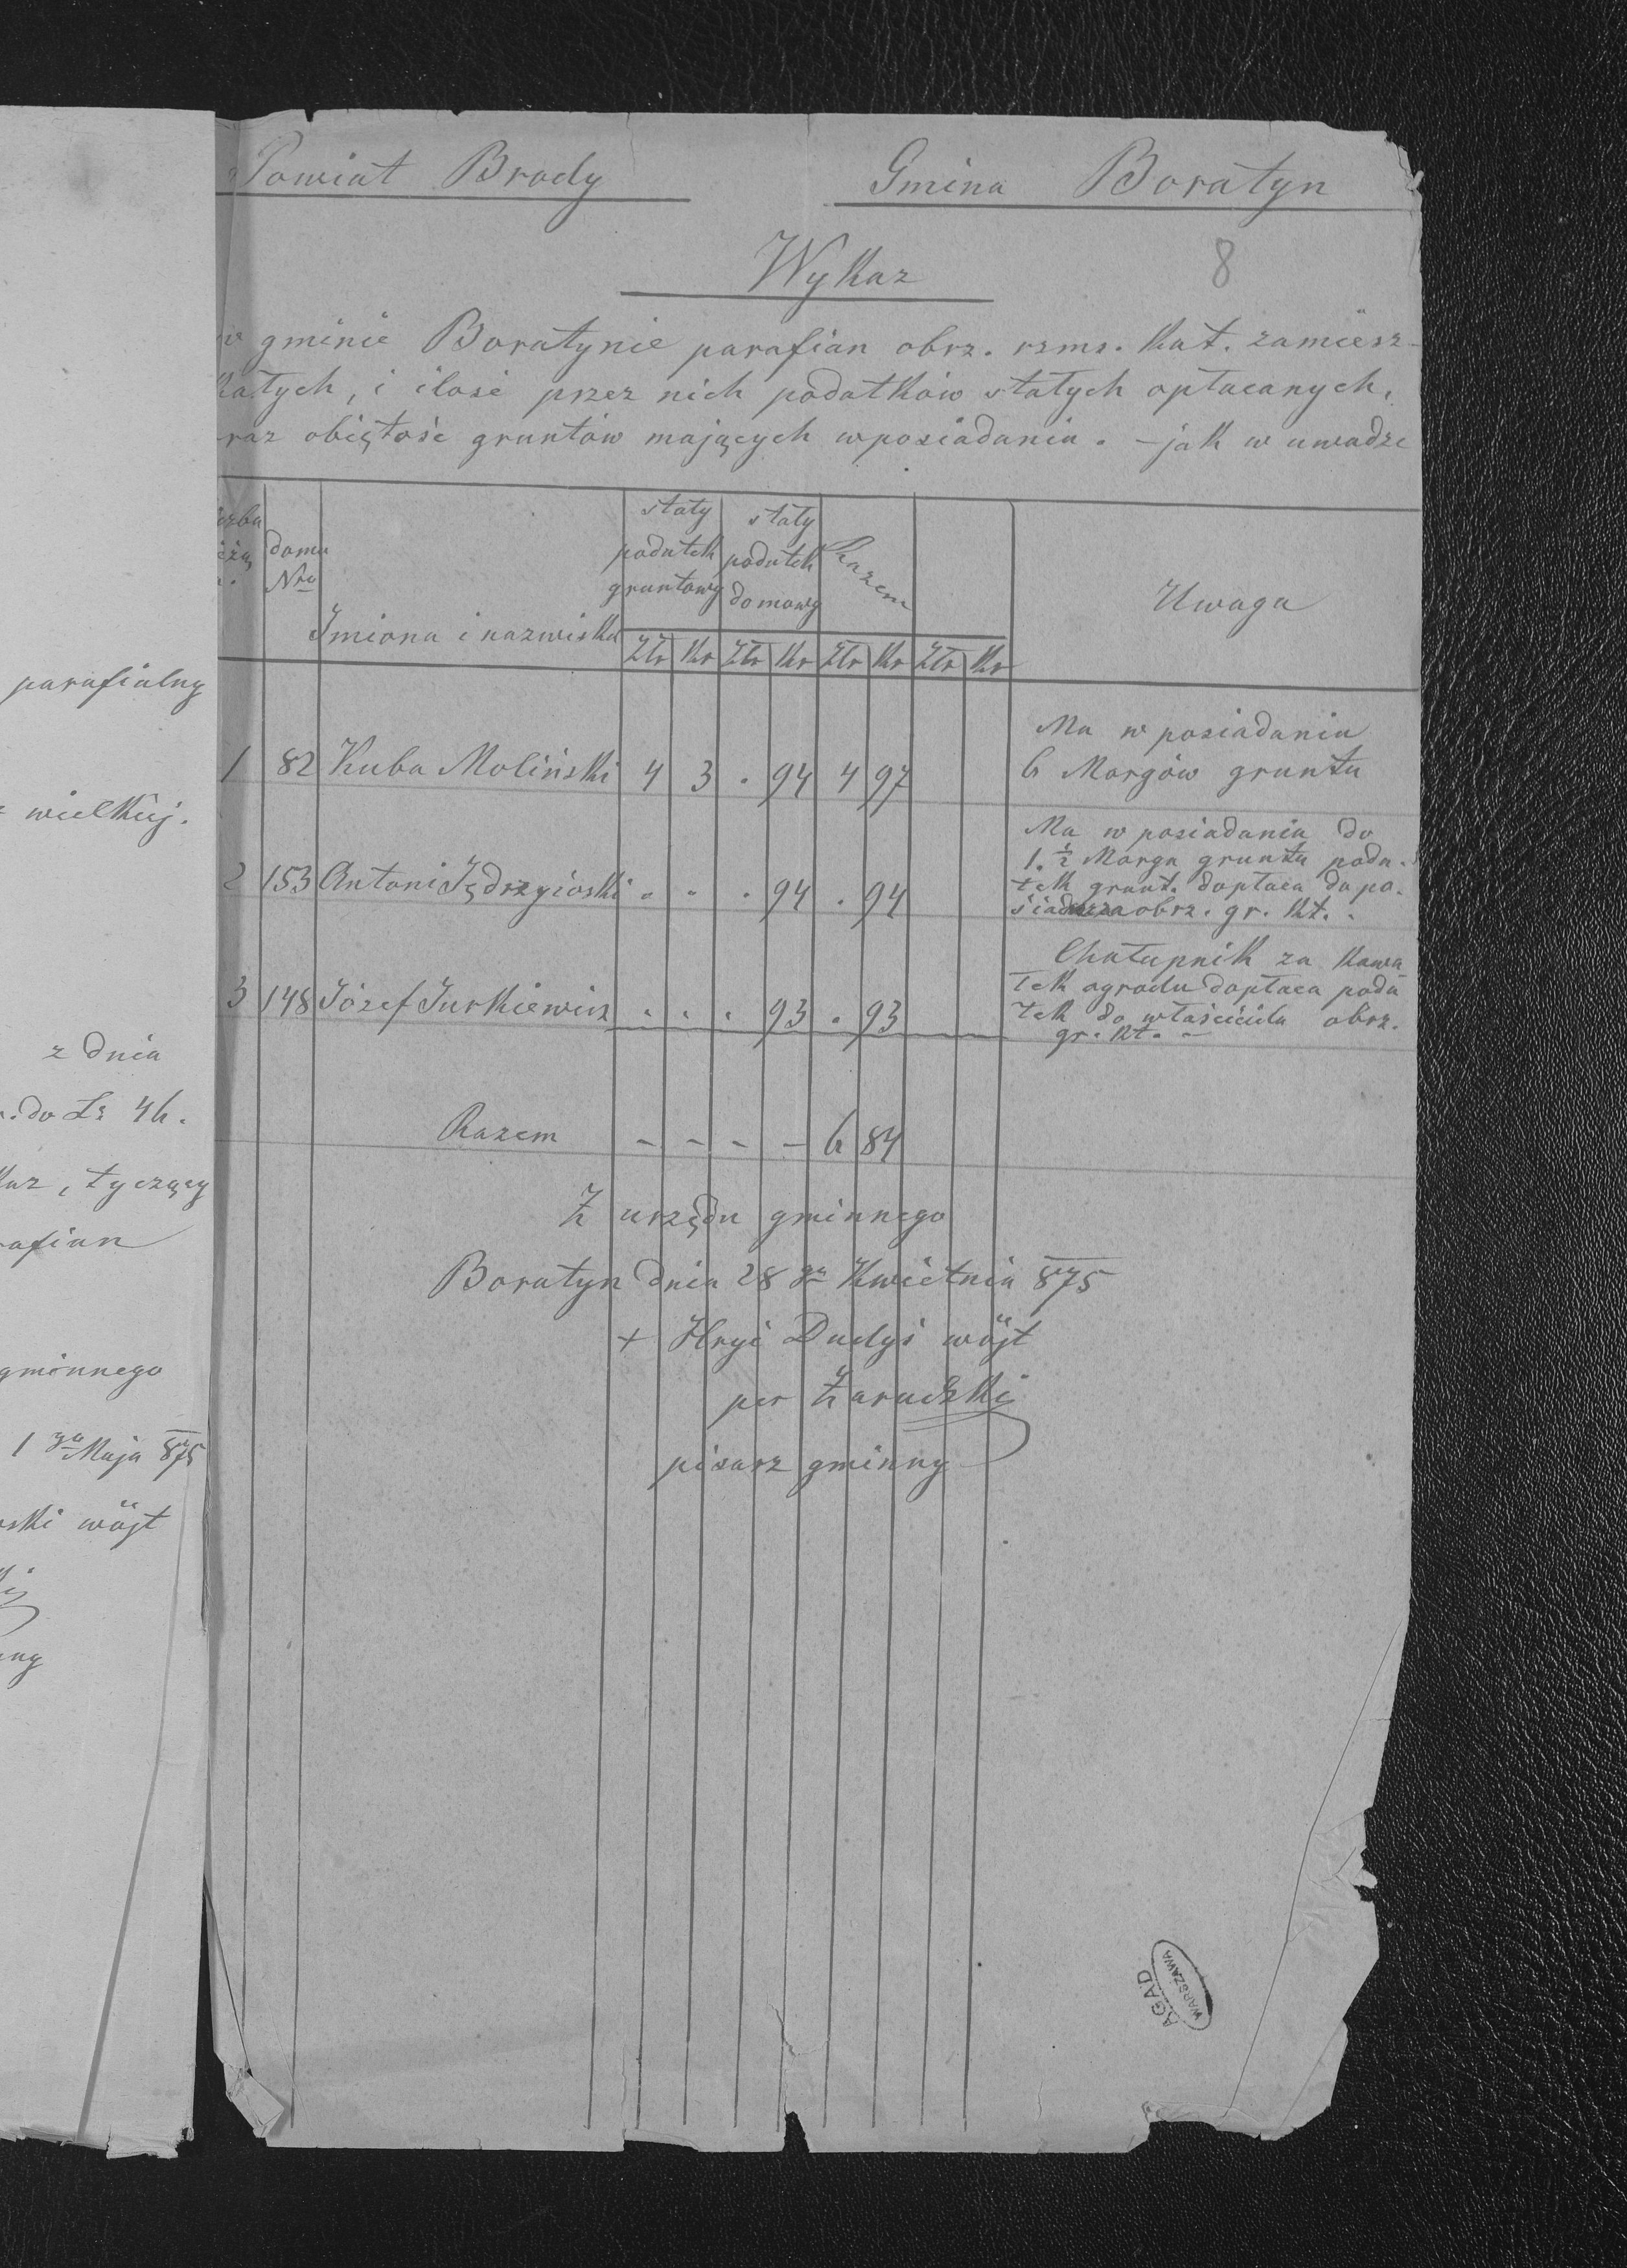 Powiat Brody
Gmina Boratyn
8
Wykaz
w gminie Boratynie parafian obrz. rzms. Kat. zamiesz-
kałych, i ilość przez nich podatków stałych opłacanych,
raz obiętość gruntów mających w posiadaniu. - jak w uwadze
domu
Nro
Imiona i nazwiska
stały podatek gruntowy
stały podatek domowy
Razem
Uwaga
Złr Kr Złr Kr Złr Kr Złr Kr
1 82 Kuba Moliński 4 3 . 94 4 97
Ma w posiadaniu
6 Morgów gruntu
2 153 Antoni Jędrzyioski . . . 94 . 94
Ma w posiadaniu do
1. ½ Morga gruntu poda-
tek grunt. dopłaca do po-
siadacza obrz. gr. Kt. .
3 148 Józef Jurkiewicz . . . 93 . 93
Chałupnik za kawa-
łek ogrodu dopłaca poda
tek do właściciela obrz.
gr. Kt. -
Razem - - - - 6 84
Z urzędu gminnego
Boratyn dnia 28 go Kwietnia 875
+ Hryć Dudys wójt
per Zarudzki
pisarz gminny
AGAD
WARSZAWA
parafialny
wielkiej.
z dnia
do Lz 46.
kaz, tyczący
rafian
gminnego
1 go Maja 875
ski wójt